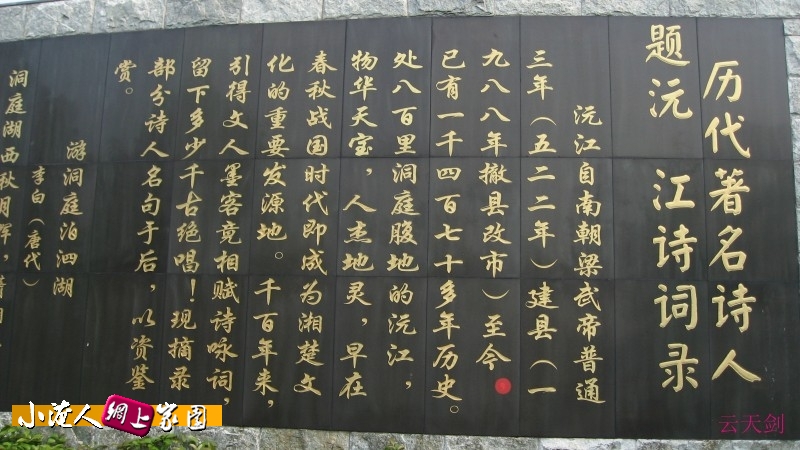 历代著名诗人
题沅江诗词录
沅江自南朝梁武帝普通
三年（五二二年）建县（一
九八八年撤县改市）至今
已有一千四百七十多年历史。
处八百里洞庭腹地的沅江，
物华天宝，人杰地灵，早在
春秋战国时代即成为湘楚文
化的重要发源地。千百年来，
引得文人墨客竞相赋诗咏词，
留下多少千古绝唱！现摘录
部分诗人名句于后，以资鉴
赏。
游洞庭泊泗湖
李白（唐代）
洞庭湖西秋月辉，
小淹人網上家園
云天剑